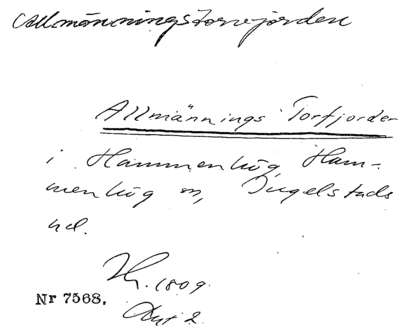 Allmänningstorvejorden
Allmännings Torfjorden
i Hammenhög, Ham-
menhög sn, Ingelstads
hd.
Nr 7568. 1809.
Akt 2.